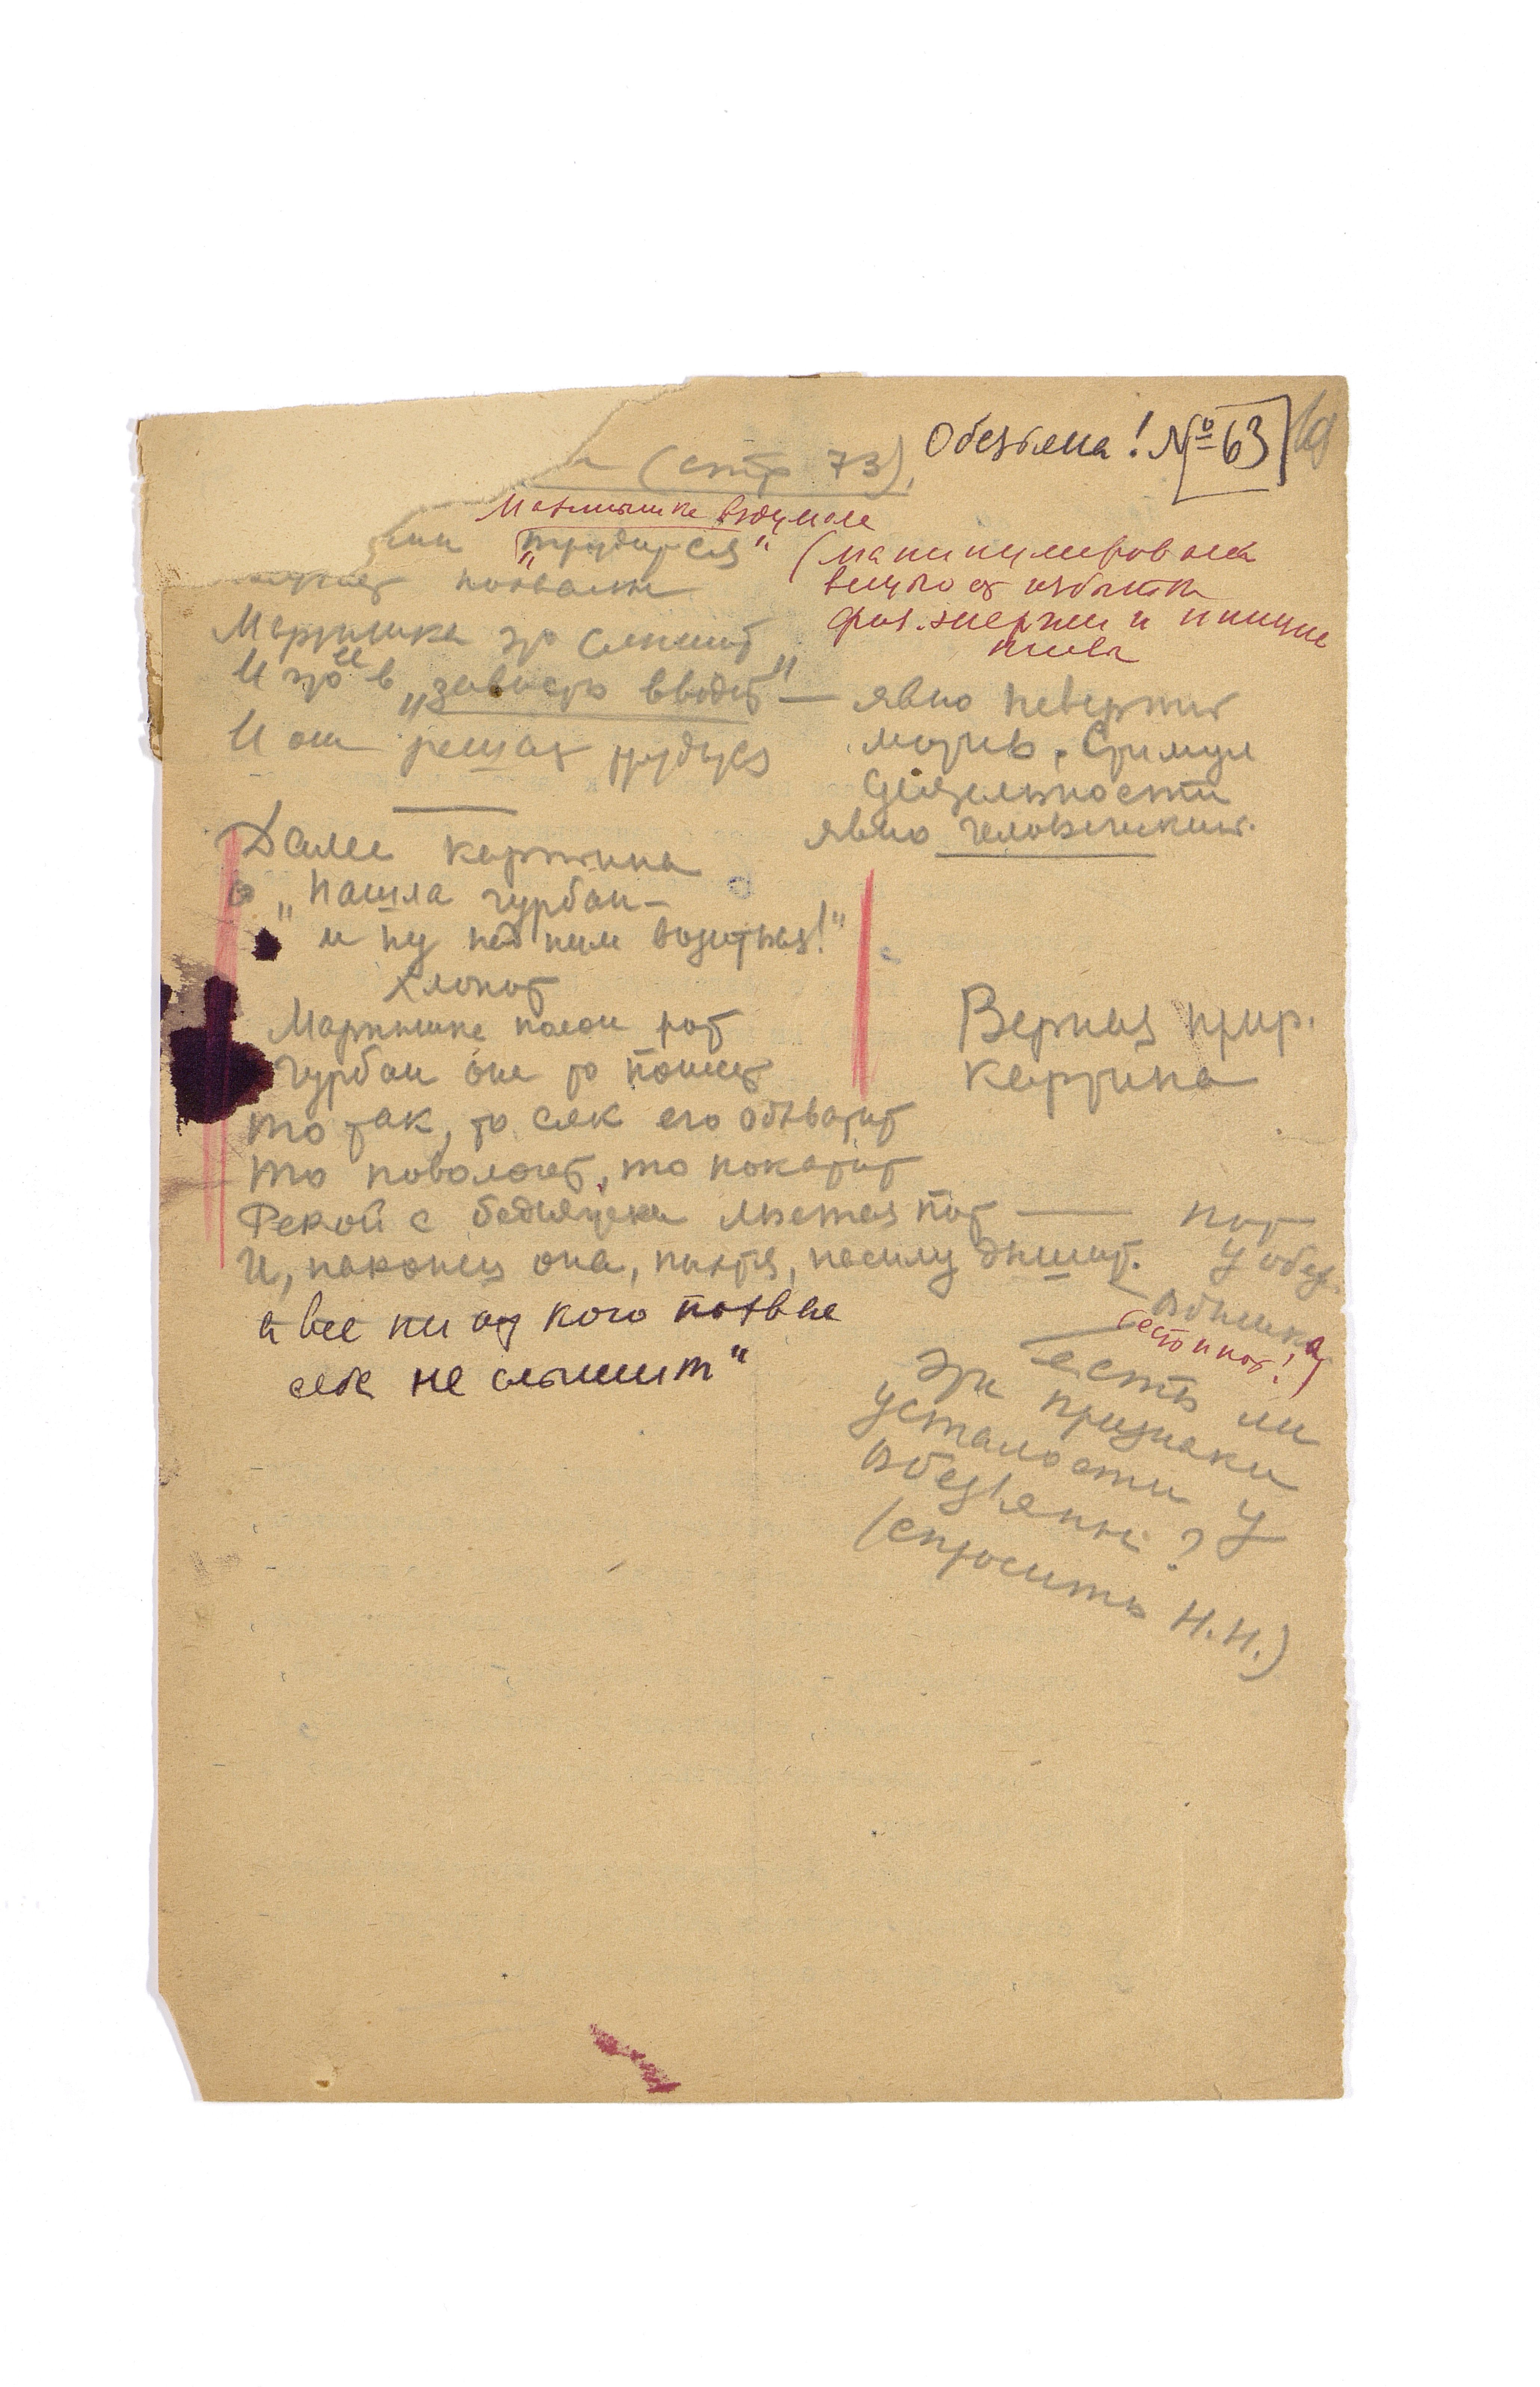 Обезьяна! № 63
(стр 73),
Мартышка вздумала
"трудиться"
(манипулировала
вещью от избытка
физ. энергии и
похвалы
Мартышка это слышит
И это ее в „зависть вводит" — явно неверный
мотив. Стимул
деятельности
явно человеческий.
И он решает трудиться
Далее картина
„Нашла чурбан —
и ну над ним возиться!"
Хлопот
Мартышке полон рот
Чурбан она то понесет
то так, то сяк его обхватит
То поволочет, то покатит
Верная прир.
картина
Рекой с бедняжки льется пот — пот
у обез.
И, наконец она, пыхтя, насилу дышит.
одышка
(есть и пот!)
а все ни от кого похвал
себе не слышит"
есть ли
эти признаки
усталости у
обезьяны?
(спросить Н.Н.)